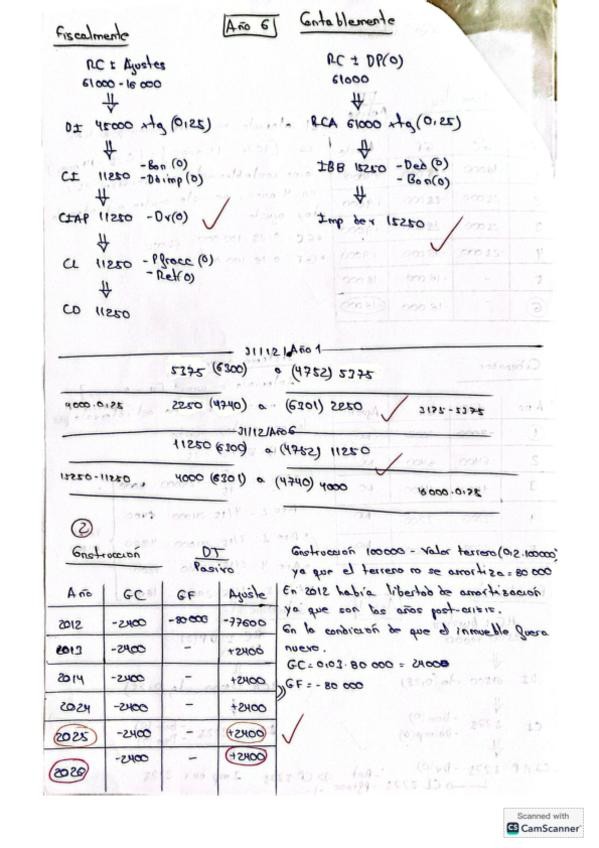 Fiscalmente
Año 6
Contablemente
RC ± Ajustes
61000 - 16 000
RC ± DP(0)
61000
DI 45000 x tg (0,25)
RCA 61000 x tg (0,25)
CI 11250 - Bon (0)
- Dbimp (0)
IBB 15250 - Ded (0)
- Bon(0)
CIAP 11250 - Dr(0)
Imp der 15250
CL 11250 - Pfracc (0)
- Ret(0)
CD 11250
31/12/Año 1
5375 (6300) a (4752) 5375
9000·0,25 2250 (4740) a (6301) 2250 3125 - 5375
31/12/Año 6
11250 (6300) a (4752) 11250
15250 - 11250 4000 (6301) a (4740) 4000 16000·0,25
2
Construcción
DT
Pasivo
Año GC GF Ajuste
2012 -2400 -80000 -77600
2013 -2400 - +2400
2014 -2400 - +2400
2024 -2400 - +2400
2025 -2400 - +2400
2026 -2400 - +2400
Construcción 100000 - Valor terreno (0,2·100000)
ya que el terreno no se amortiza = 80 000
En 2012 había libertad de amortización
ya que son los años post-crisis.
Con la condición de que el inmueble fuera
nuevo.
GC = 0,03·80 000 = 24000
GF = - 80 000
Scanned with
CS CamScanner